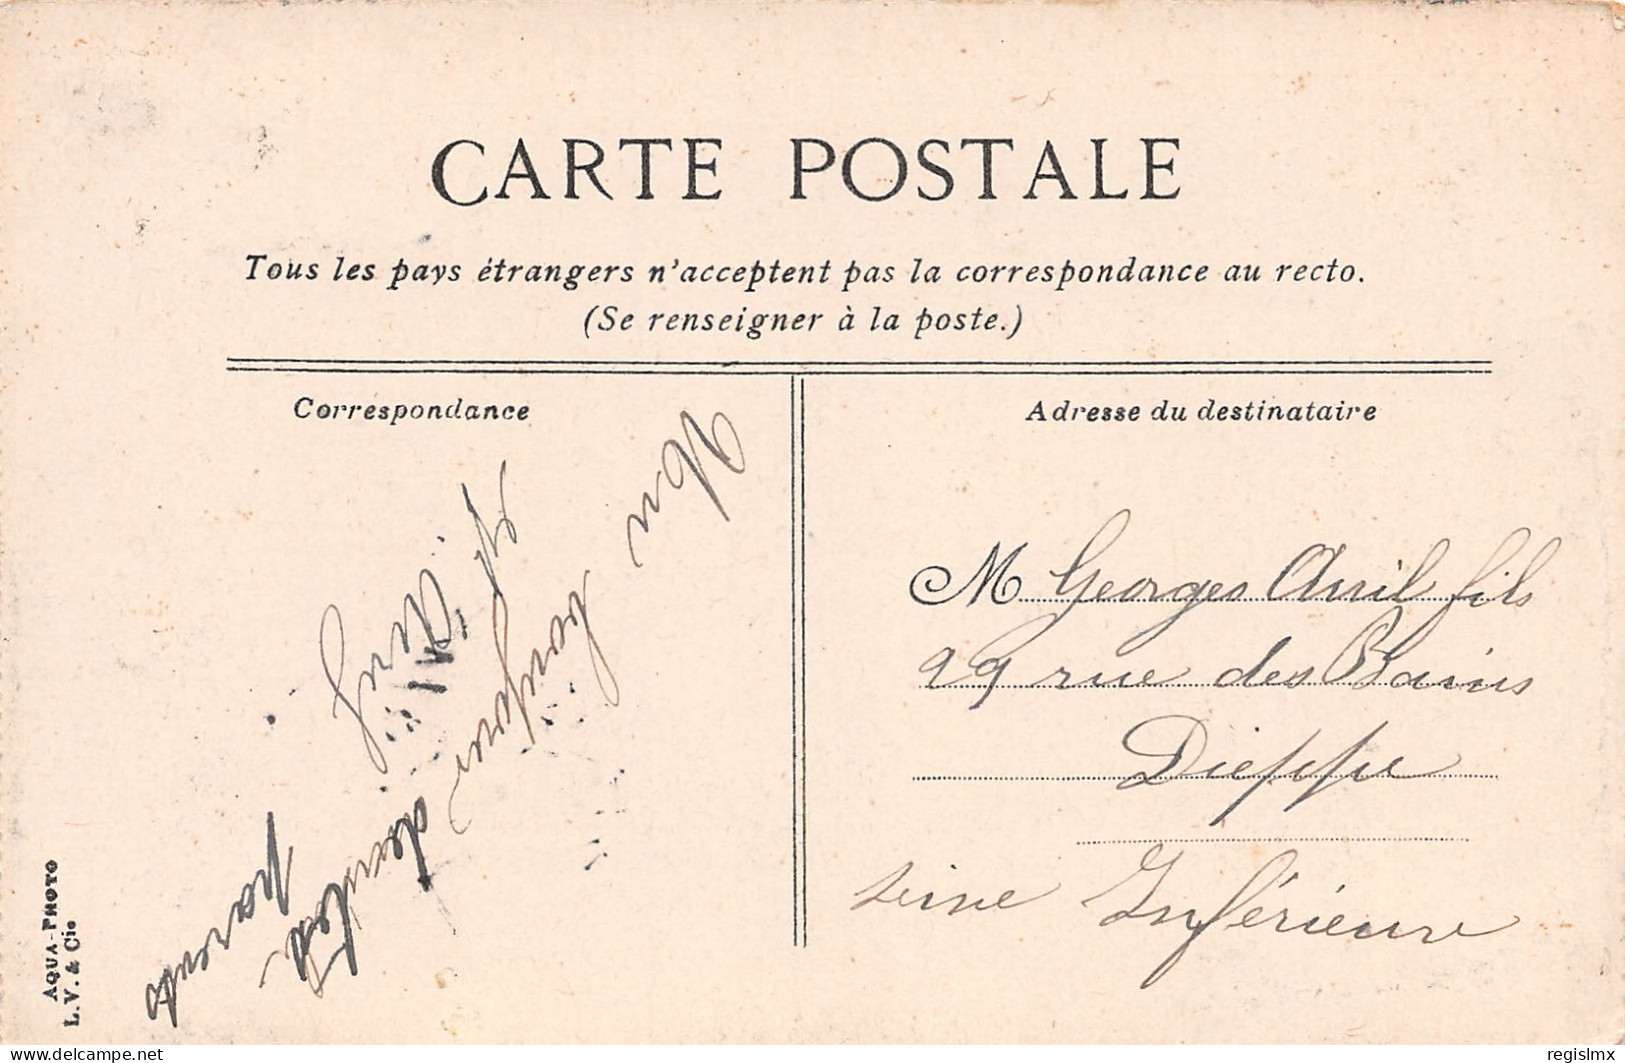 CARTE POSTALE
Tous les pays étrangers n'acceptent pas la correspondance au recto.
(Se renseigner à la poste.)
Correspondance
Adresse du destinataire
Un bonjour
de tes
parents
M Georges Anil fils
29 rue des Bains
Dieppe
Seine Inférieure
AQUA-PHOTO
L.V. & Cie
delcampe.net
regislmx